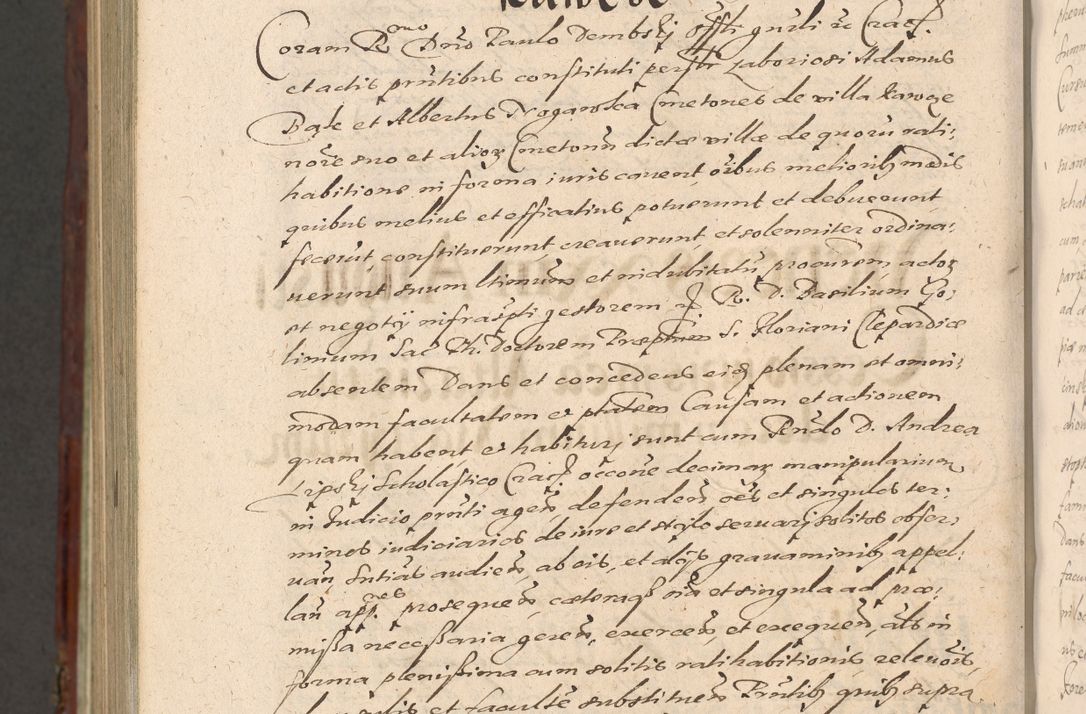 Coram R<sup>mo</sup> Dño Paulo Dembskj offti gñrli ic Crac.
et actis pñtibus constituti persr Laboriosi Adamus
Bale et Albertus Nogawka Cmetones de villa Rawoze
noïe suo et alior Cmetonũ dictæ villæ de quorũ rati-
habitione in forma iuris cavent oïbus meliorib modis
quibus melius et efficatius potuerunt et debuerunt
fecerũt constituerunt creaverunt et solenniter ordina-
verunt suum ltimum et indubitatũ procurem actor
et negotij infrascpti gestorem R. D. Basilium Go-
linium Sac Th. Doctorem Præptum S. Floriani Clepardiæ
absentem Dans et concedens eid plenam et omni-
modam facultatem et ptatem Causam et actionem
quam habent et habiturj sunt cum Rñdo D. Andrea
Lipskj Scholastico Crac occõne decimar manipularium
in Judicio pñti agen defenden oes et singulos ter-
minos iudiciarios de iure et stylo servarj solitos obser-
van Sntias audien ab eis, et alijs gravaminib appel-
lan app<sup>nes</sup> prosequen cæteraq oia et singula ad præ-
missa necessaria geren, exercen et exequen, als in
forma plenissima cum solitis ratihabitionis relevõis
et faculte substituen Pñtib quib supra